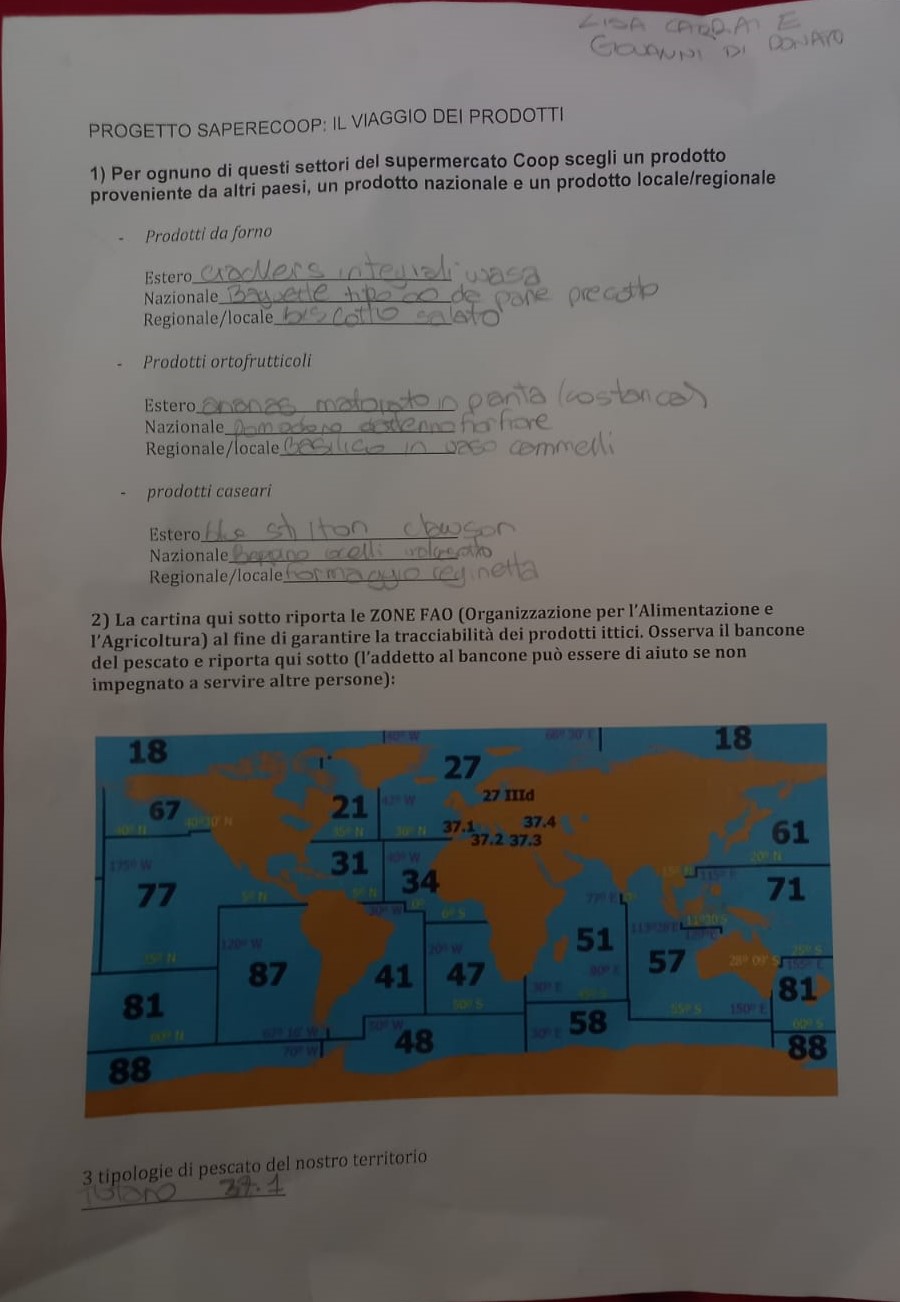 LISA CARRAI E
GIOVANNI DI DONATO
PROGETTO SAPERECOOP: IL VIAGGIO DEI PRODOTTI
1) Per ognuno di questi settori del supermercato Coop scegli un prodotto
proveniente da altri paesi, un prodotto nazionale e un prodotto locale/regionale
- Prodotti da forno
Estero crackers integrali wasa
Nazionale Baguette tipo 00 de pane precotto
Regionale/locale biscotto salato
- Prodotti ortofrutticoli
Estero ananas maturato in pianta (costarica)
Nazionale Pomodoro datterino fiorfiore
Regionale/locale Basilico in vaso commelli
- prodotti caseari
Estero blue stilton clawson
Nazionale Beppino ocelli
Regionale/locale formaggio reginetta
2) La cartina qui sotto riporta le ZONE FAO (Organizzazione per l'Alimentazione e
l'Agricoltura) al fine di garantire la tracciabilità dei prodotti ittici. Osserva il bancone
del pescato e riporta qui sotto (l'addetto al bancone può essere di aiuto se non
impegnato a servire altre persone):
40° W 68° 30' E
18 18
27
67 21 42° W 27 IIId
40° N 40° 30' N 35° N 36° N 37.1 37.4 61
37.2 37.3
175° W 31 40° W 20° N
77 34 115° E 71
5° N 5° N 0° 77° E
30° W 6° S 11° 20' S
120° W 20° W 51 129° E
25° N 87 41 47 57 28° 09' S 25° S
80° E 155° E
81 30° E 81
50° S 55° S 150° E
60° N 58 60° S
67° 16' W 50° W 30° E
88 70° W 48 88
3 tipologie di pescato del nostro territorio
Totano 37.1